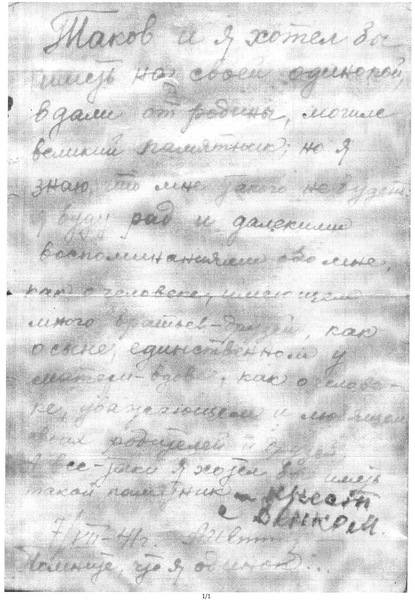 Таков и я хотел бы
иметь на своей одинокой,
вдали от родины, могиле
великий памятник; но я
знаю, что мне такого не будет,
я буду рад и далекими
воспоминаниями обо мне,
как о человеке, имеющем
много братьев-друзей, как
о сыне, единственном у
матери-вдове, как о челове-
ке, уважающем и любящем
своих родителей и друзей
А все-таки я хотел бы иметь
такой памятник - крест
с венком.
7/VII-41г.
Помните, что я одинок...
1/1